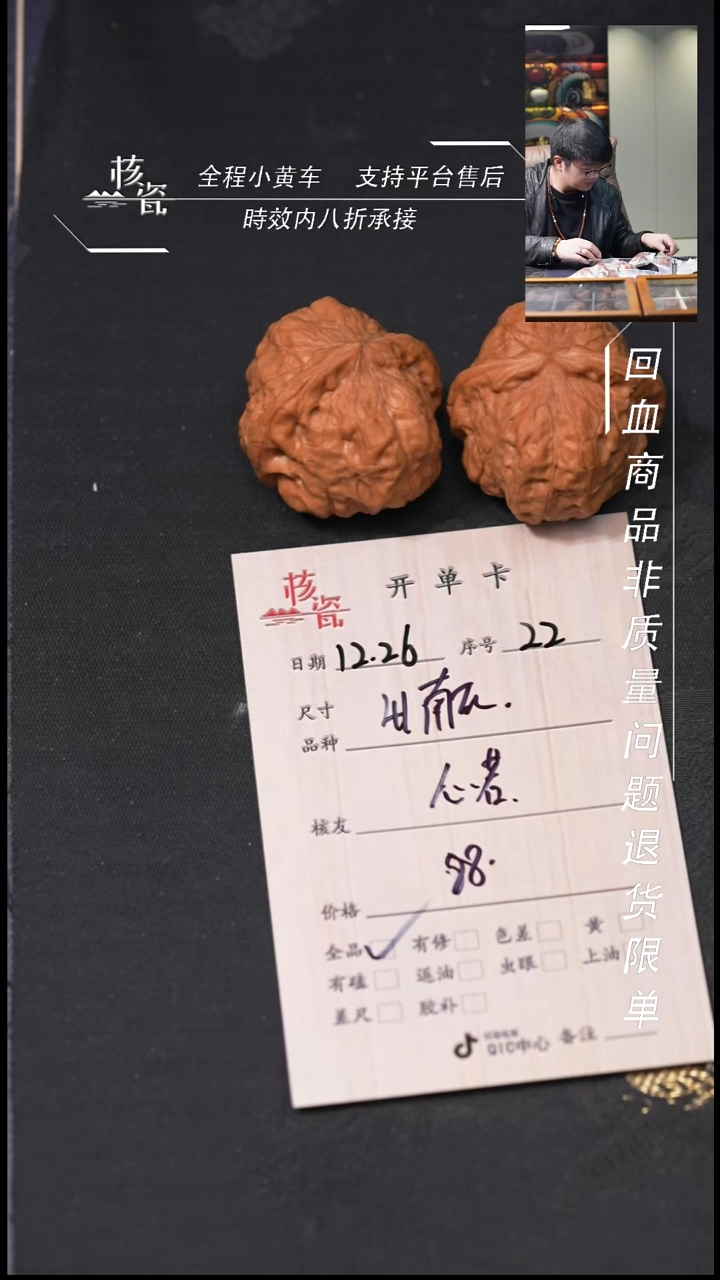 核瓷
全程小黄车 支持平台售后
時效内八折承接
回血商品非质量问题退货限单
核瓷
开单卡
日期 12.26 序号 22
尺寸
品种
核友
价格
全品 ✓ 有修 色差 黄
有磕 返油 虫眼 上油
差尺 胶补
QIC中心 备注